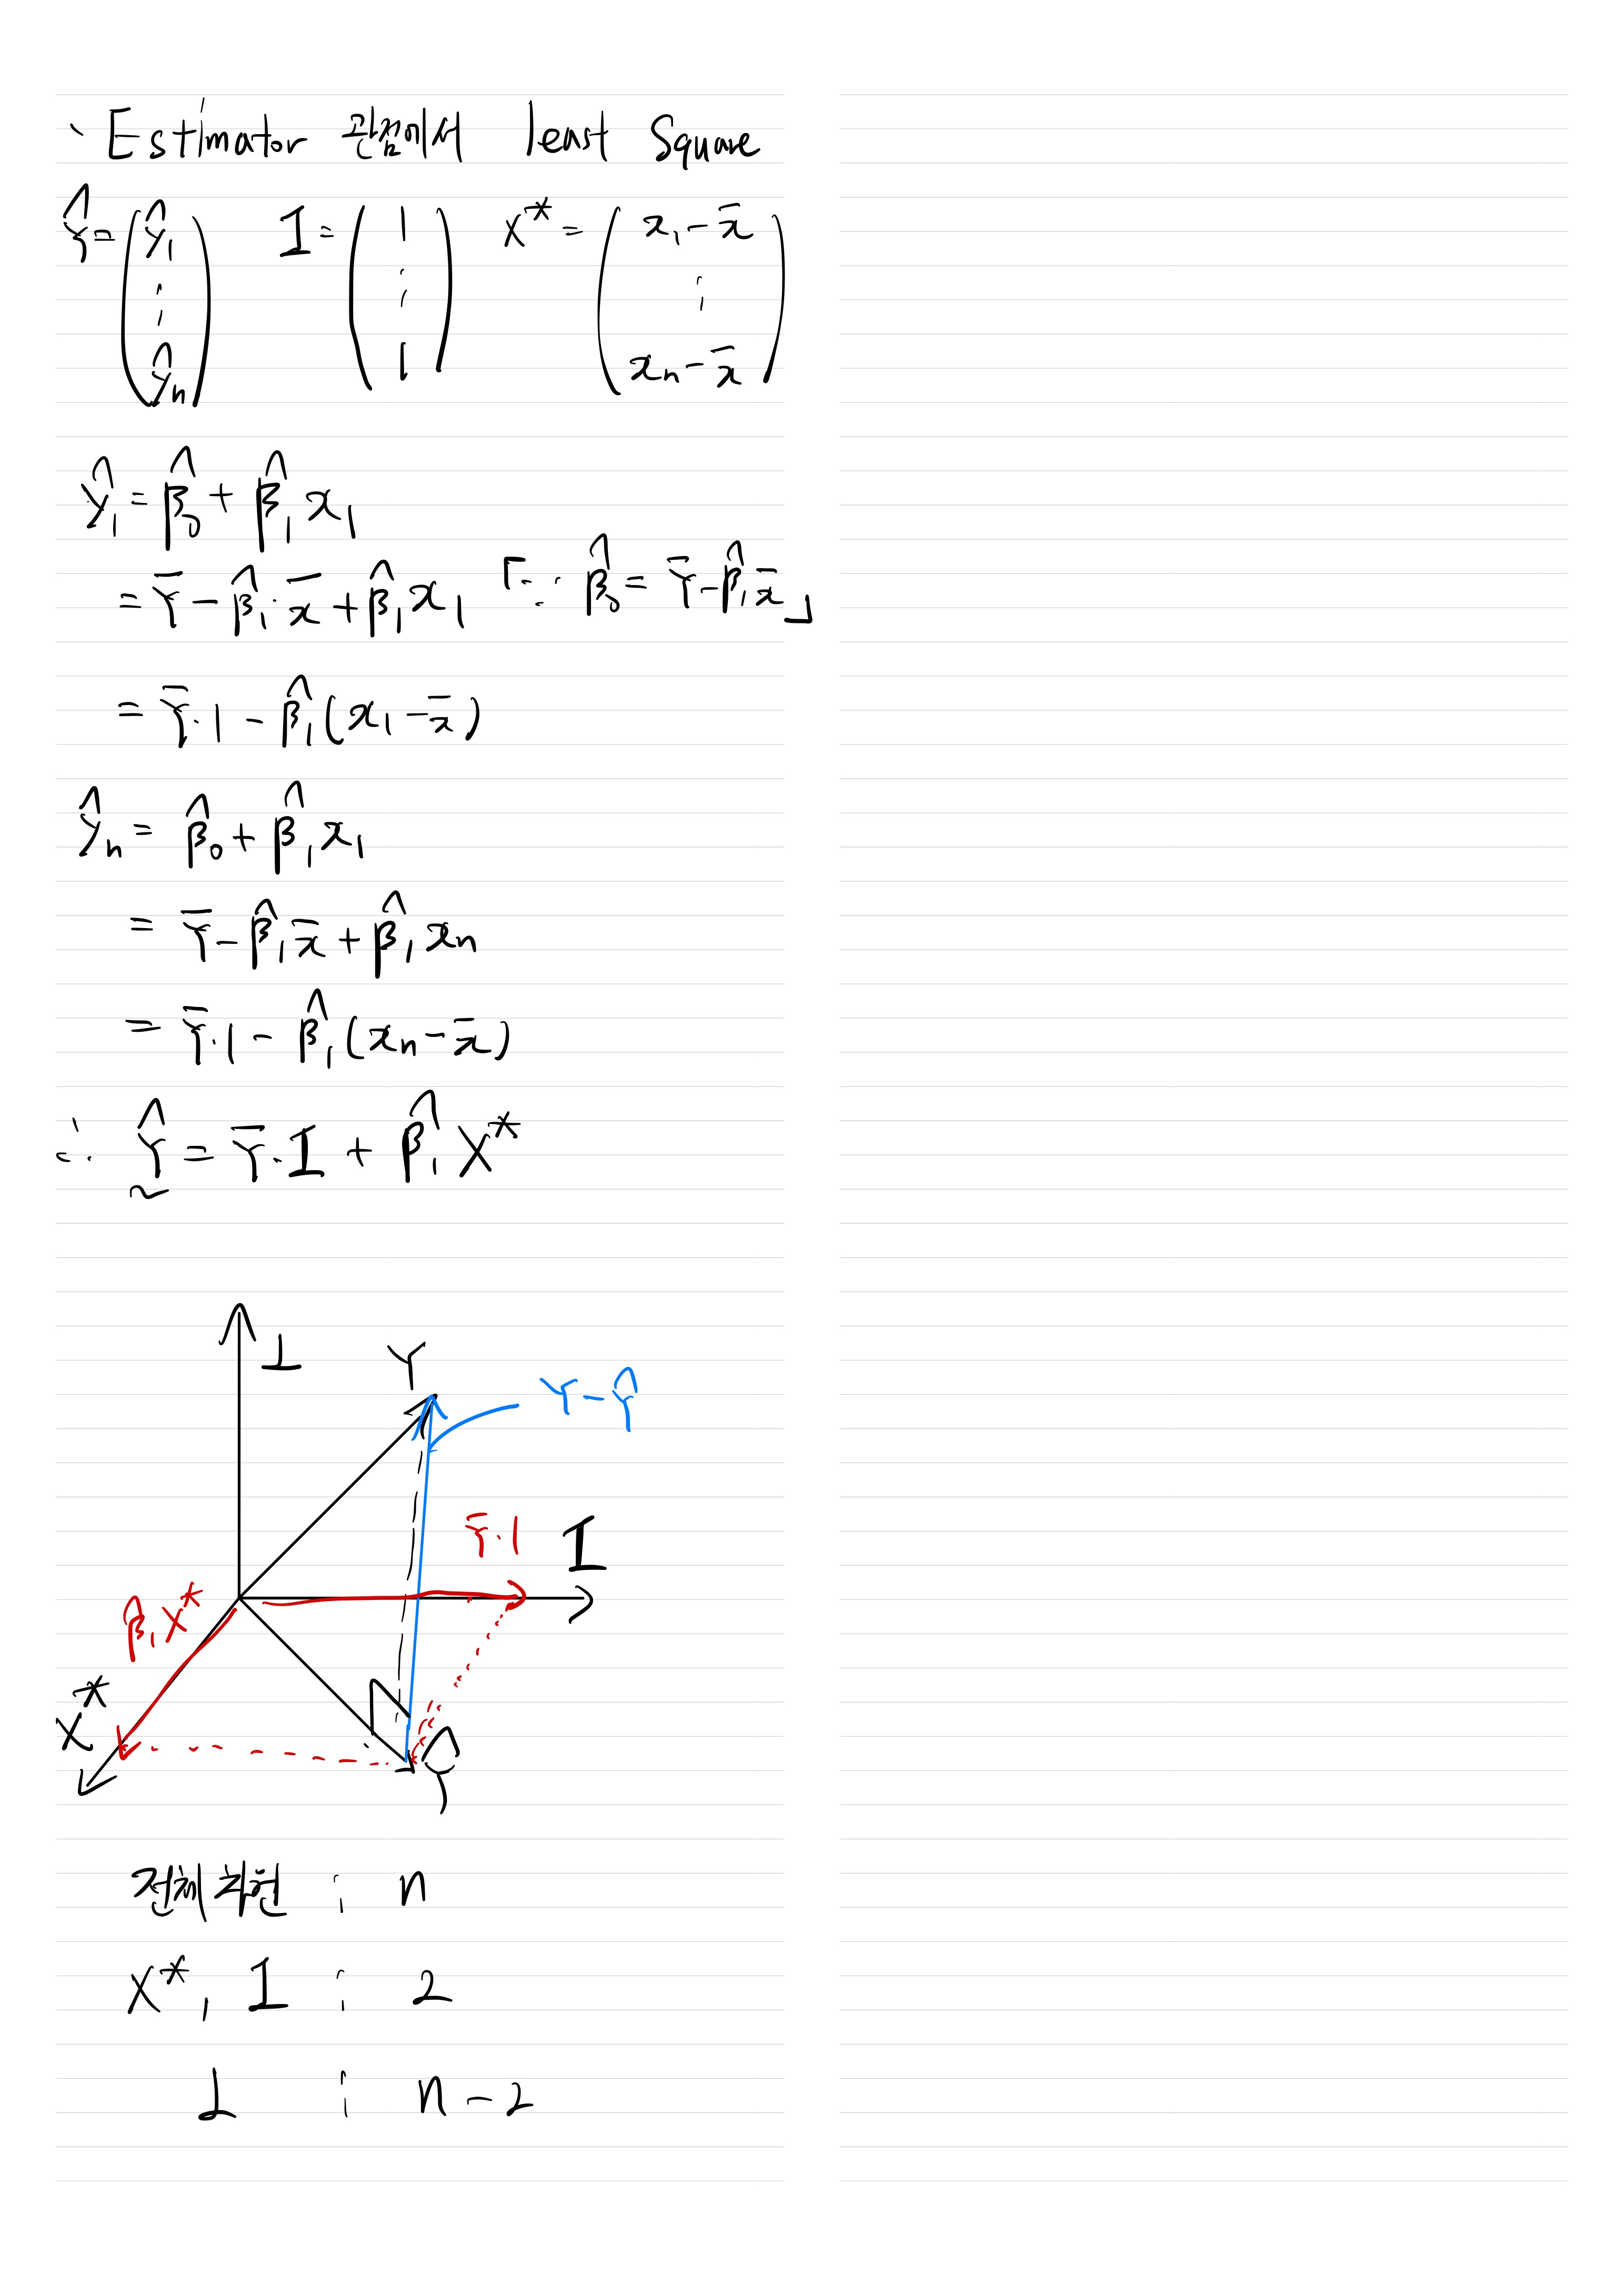 Estimator 관점에서 least Square
Ŷ = (ŷ₁ ⋮ ŷn) 𝟙 = (1 ⋮ 1) X* = (x₁ - x̄ ⋮ xn - x̄)
ŷ₁ = β̂₀ + β̂₁x₁
= Ȳ - β̂₁·x̄ + β̂₁x₁ 「∵ β̂₀ = Ȳ - β̂₁x̄」
= Ȳ·1 - β̂₁(x₁ - x̄)
ŷn = β̂₀ + β̂₁x₁
= Ȳ - β̂₁x̄ + β̂₁xn
= Ȳ·1 - β̂₁(xn - x̄)
∴ Ŷ = Ȳ·𝟙 + β̂₁X*
⊥
Y
Y - Ŷ
Ȳ·1
𝟙
β̂₁X*
X*
Ŷ
전체차원 : n
X*, 𝟙 : 2
⊥ : n-2